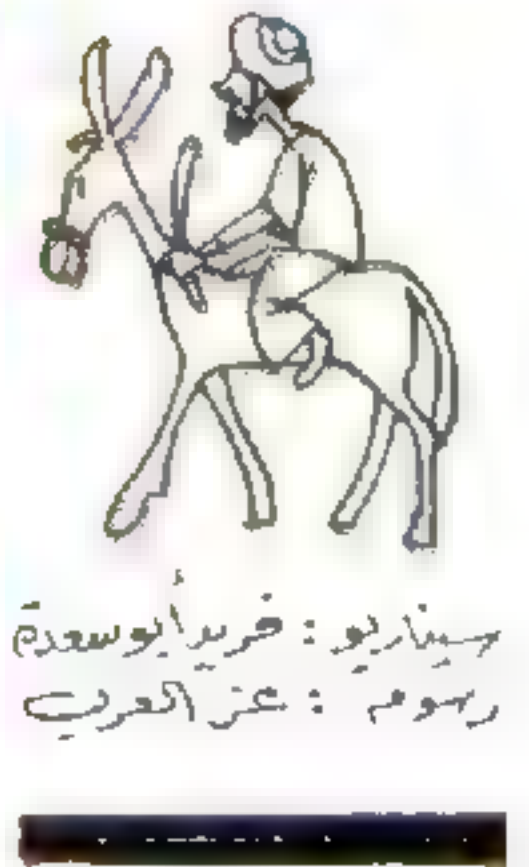 سيناريو : فريد أبو سعدة
رسوم : عز العرب